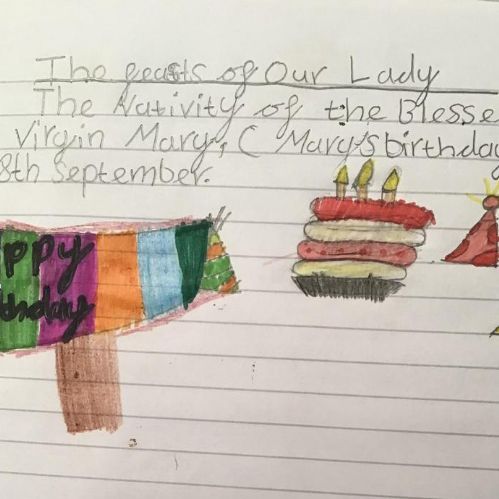 The feasts of Our Lady
The Nativity of the Blesse
Virgin Mary, ( Mary's birthday
8th September.
ppy
thday